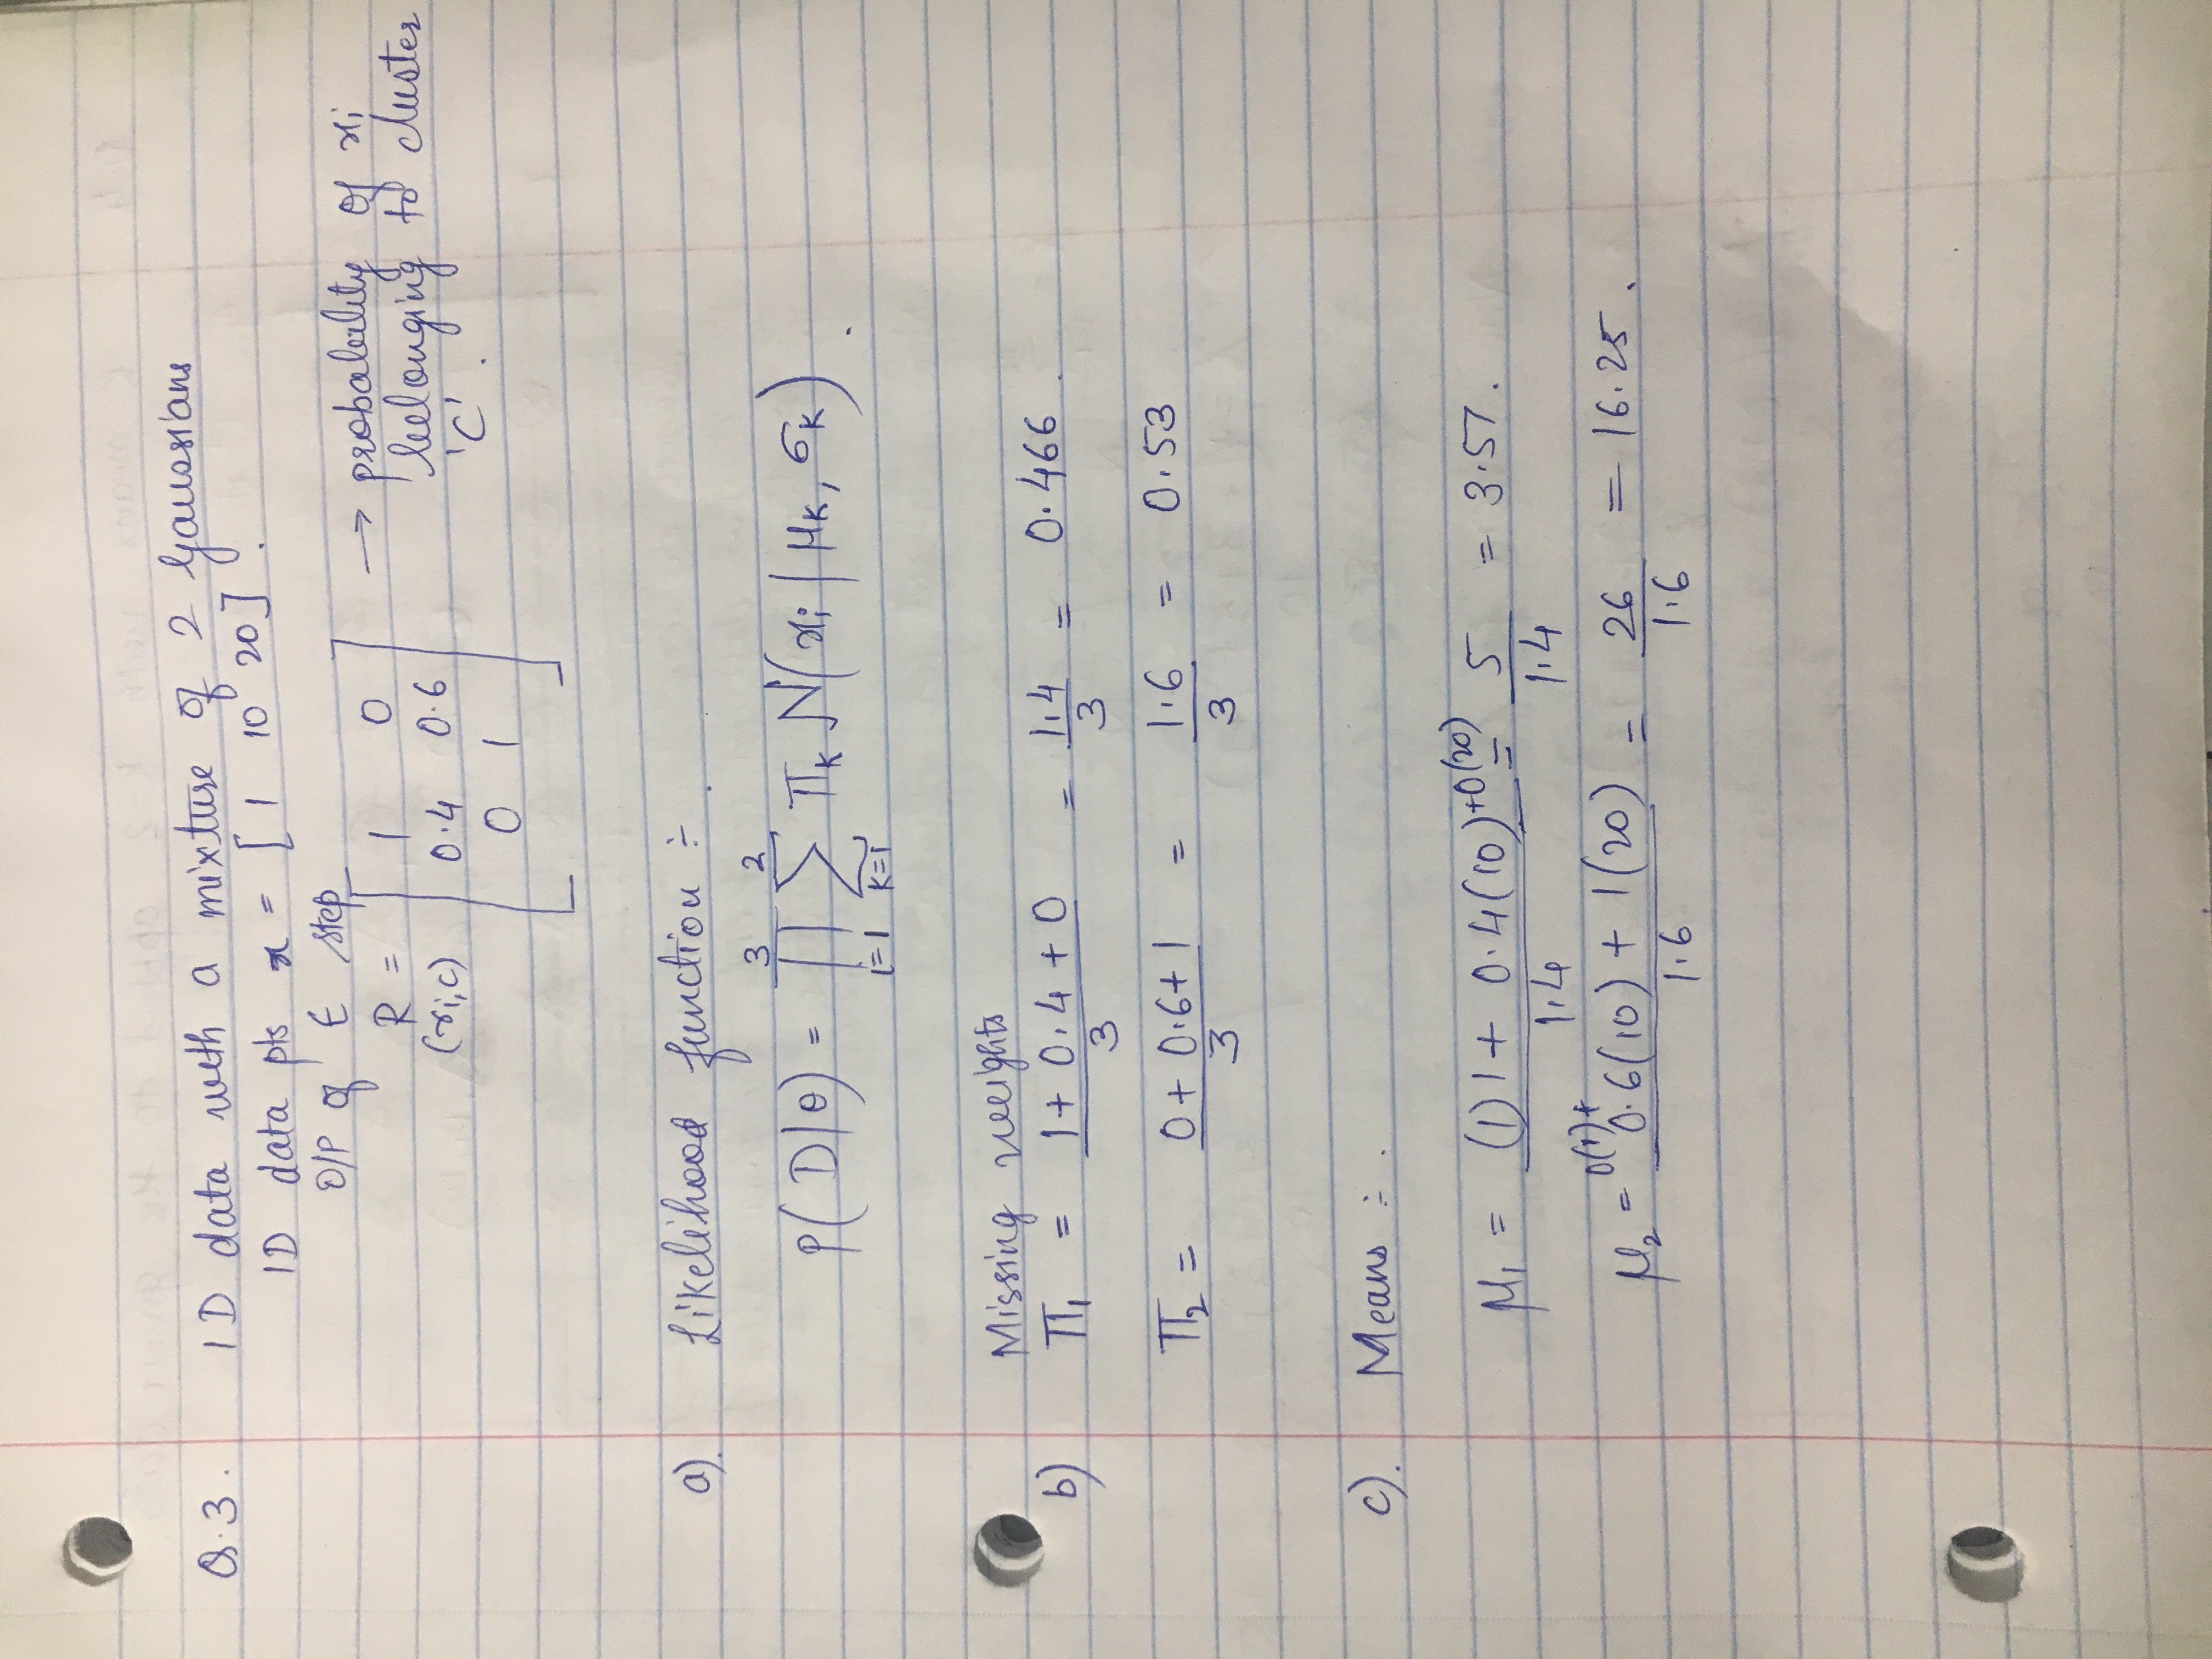 Q.3. 1D data with a mixture of 2 Gaussians
1D data pts x = [1 10 20].
O/P of E step
R = [ 1 0 → probability of xi
(ri,c) 0.4 0.6 belonging to cluster
0 1 ] 'C'.
a). Likelihood function ÷.
3 2
P(D|θ) = ∏ ∑ πk N(xi | μk, σk).
i=1 k=1
Missing weights
b) π1 = 1 + 0.4 + 0 / 3 = 1.4 / 3 = 0.466.
π2 = 0 + 0.6 + 1 / 3 = 1.6 / 3 = 0.53
c). Means ÷.
μ1 = (1)1 + 0.4(10) + 0(20) / 1.4 = 5 / 1.4 = 3.57.
μ2 = 0(1) + 0.6(10) + 1(20) / 1.6 = 26 / 1.6 = 16.25.